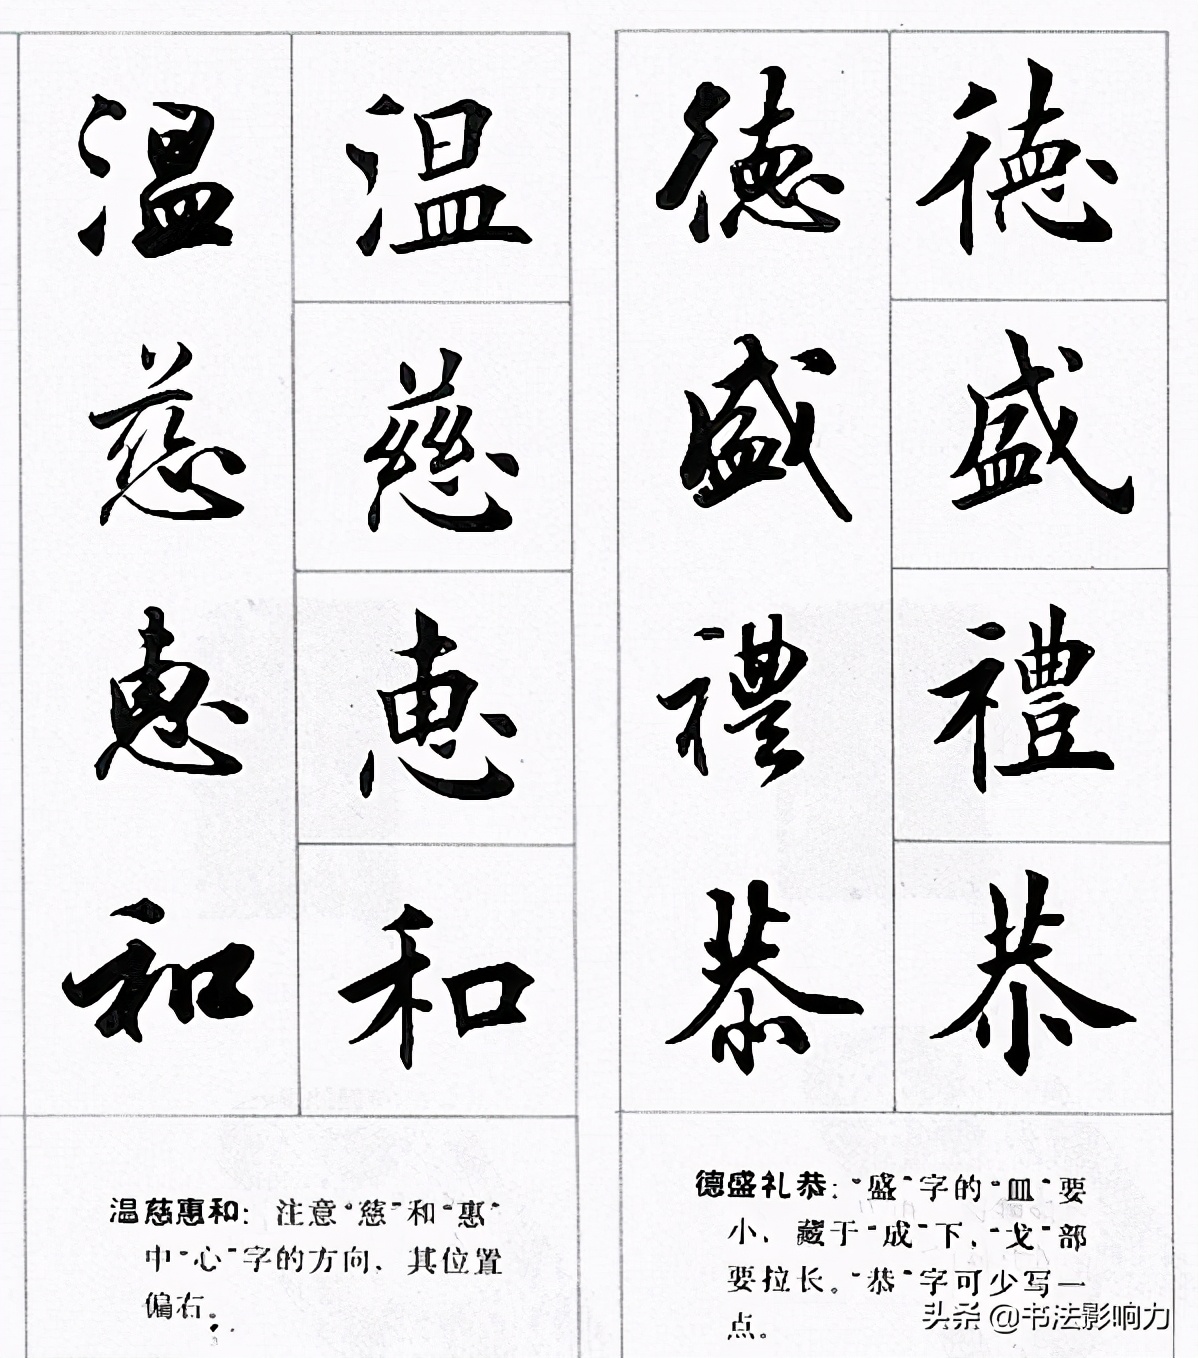 德盛禮恭
德盛禮恭
温慈惠和
温慈惠和
德盛礼恭：“盛”字的“皿”要
小，藏于“成”下，“戈”部
要拉长。“恭”字可少写一
点。
温慈惠和：注意“慈”和“惠”
中“心”字的方向，其位置
偏右。
头条 @书法影响力